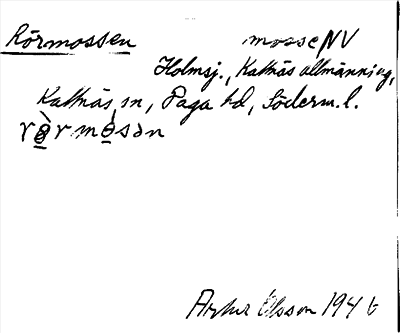 Rörmossen mosse, NV
Holmsj., Kattnäs allmänning,
Kattnäs sn, Daga hd, Söderm. l.
Artur Olsson 1946